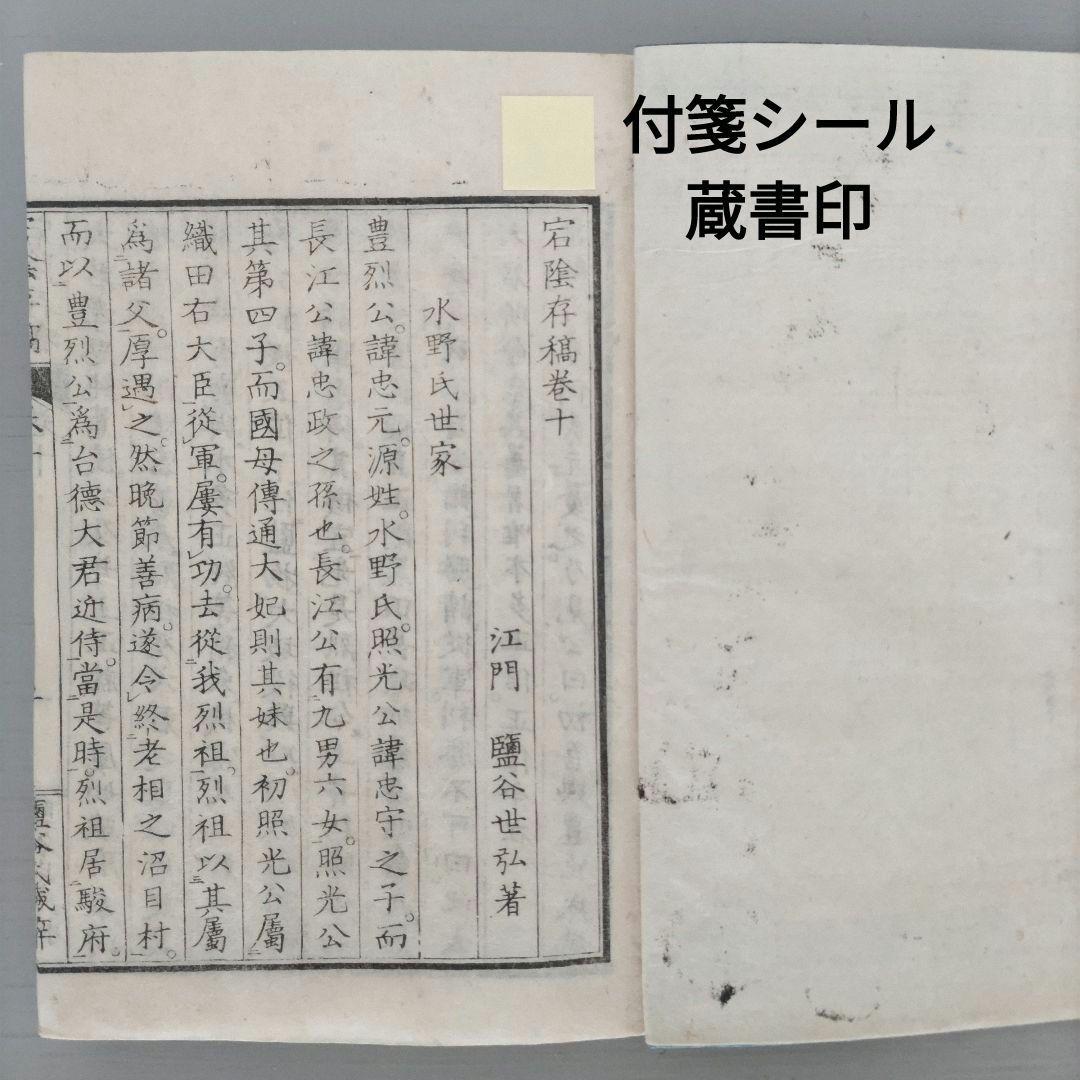 付箋シール
蔵書印
宕陰存稿卷十
江門 鹽谷世弘著
水野氏世家
豊烈公。諱忠元。源姓。水野氏。照光公諱忠守之子。而
長江公諱忠政之孫也。長江公有九男六女。照光公
其第四子。而國母傳通大妃則其妹也。初照光公屬
織田右大臣從軍。屢有功。去從我烈祖。烈祖以其屬
爲諸父。厚遇之。然晩節善病。遂令終老相之沼目村。
而以豊烈公爲台德大君近侍。當是時。烈祖居駿府。